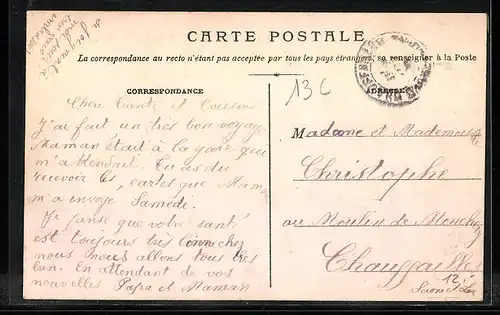 CARTE POSTALE
La correspondance au recto n'étant pas acceptée par tous les pays étrangers, se renseigner à la Poste
CORRESPONDANCE
ADRESSE
136
Chere Tante et Cousine
J'ai fait un très bon voyage
Maman était à la gare qui
m'attendait. Tu as du
recevoir les cartes que Mam
m'a envoyé Samedi.
Je pense que votre santé
est toujours très bonne chez
nous nous allons tous très
bien. En attendant de vos
nouvelles Papa et Maman
Madame et Mademoiselle
Christophe
au Moulin de
Chauffailles
12
Saone et Loire